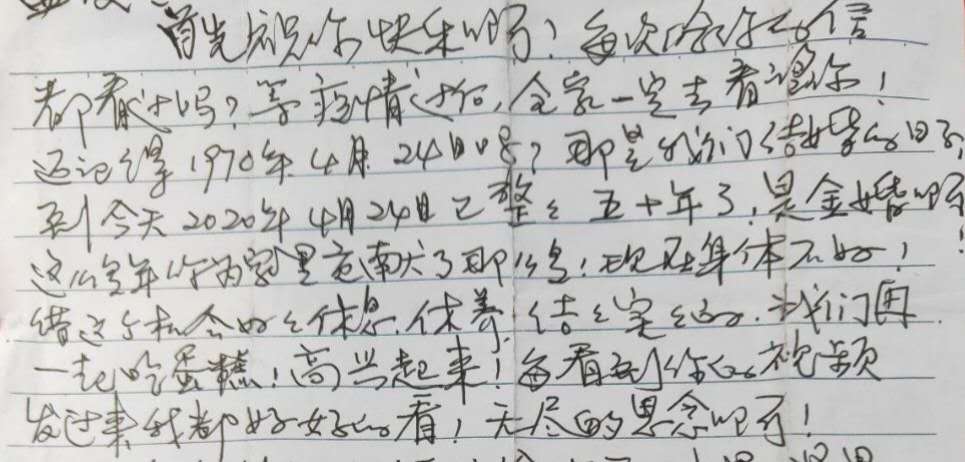 首先祝你快乐啊！每次给你的信
都看过吗？等疫情过后，全家一定去看望你！
还记得1970年4月24日吗？那是我们结婚的日子，
到今天2020年4月24日已整整五十年了，是金婚啊！
这么多年你为家里贡献了那么多！现在身体不好！
借这个机会好好休息．休养．结结实实的．我们再
一起吃蛋糕！高兴起来！每看到你的视频
发过来我都好好的看！无尽的思念啊！